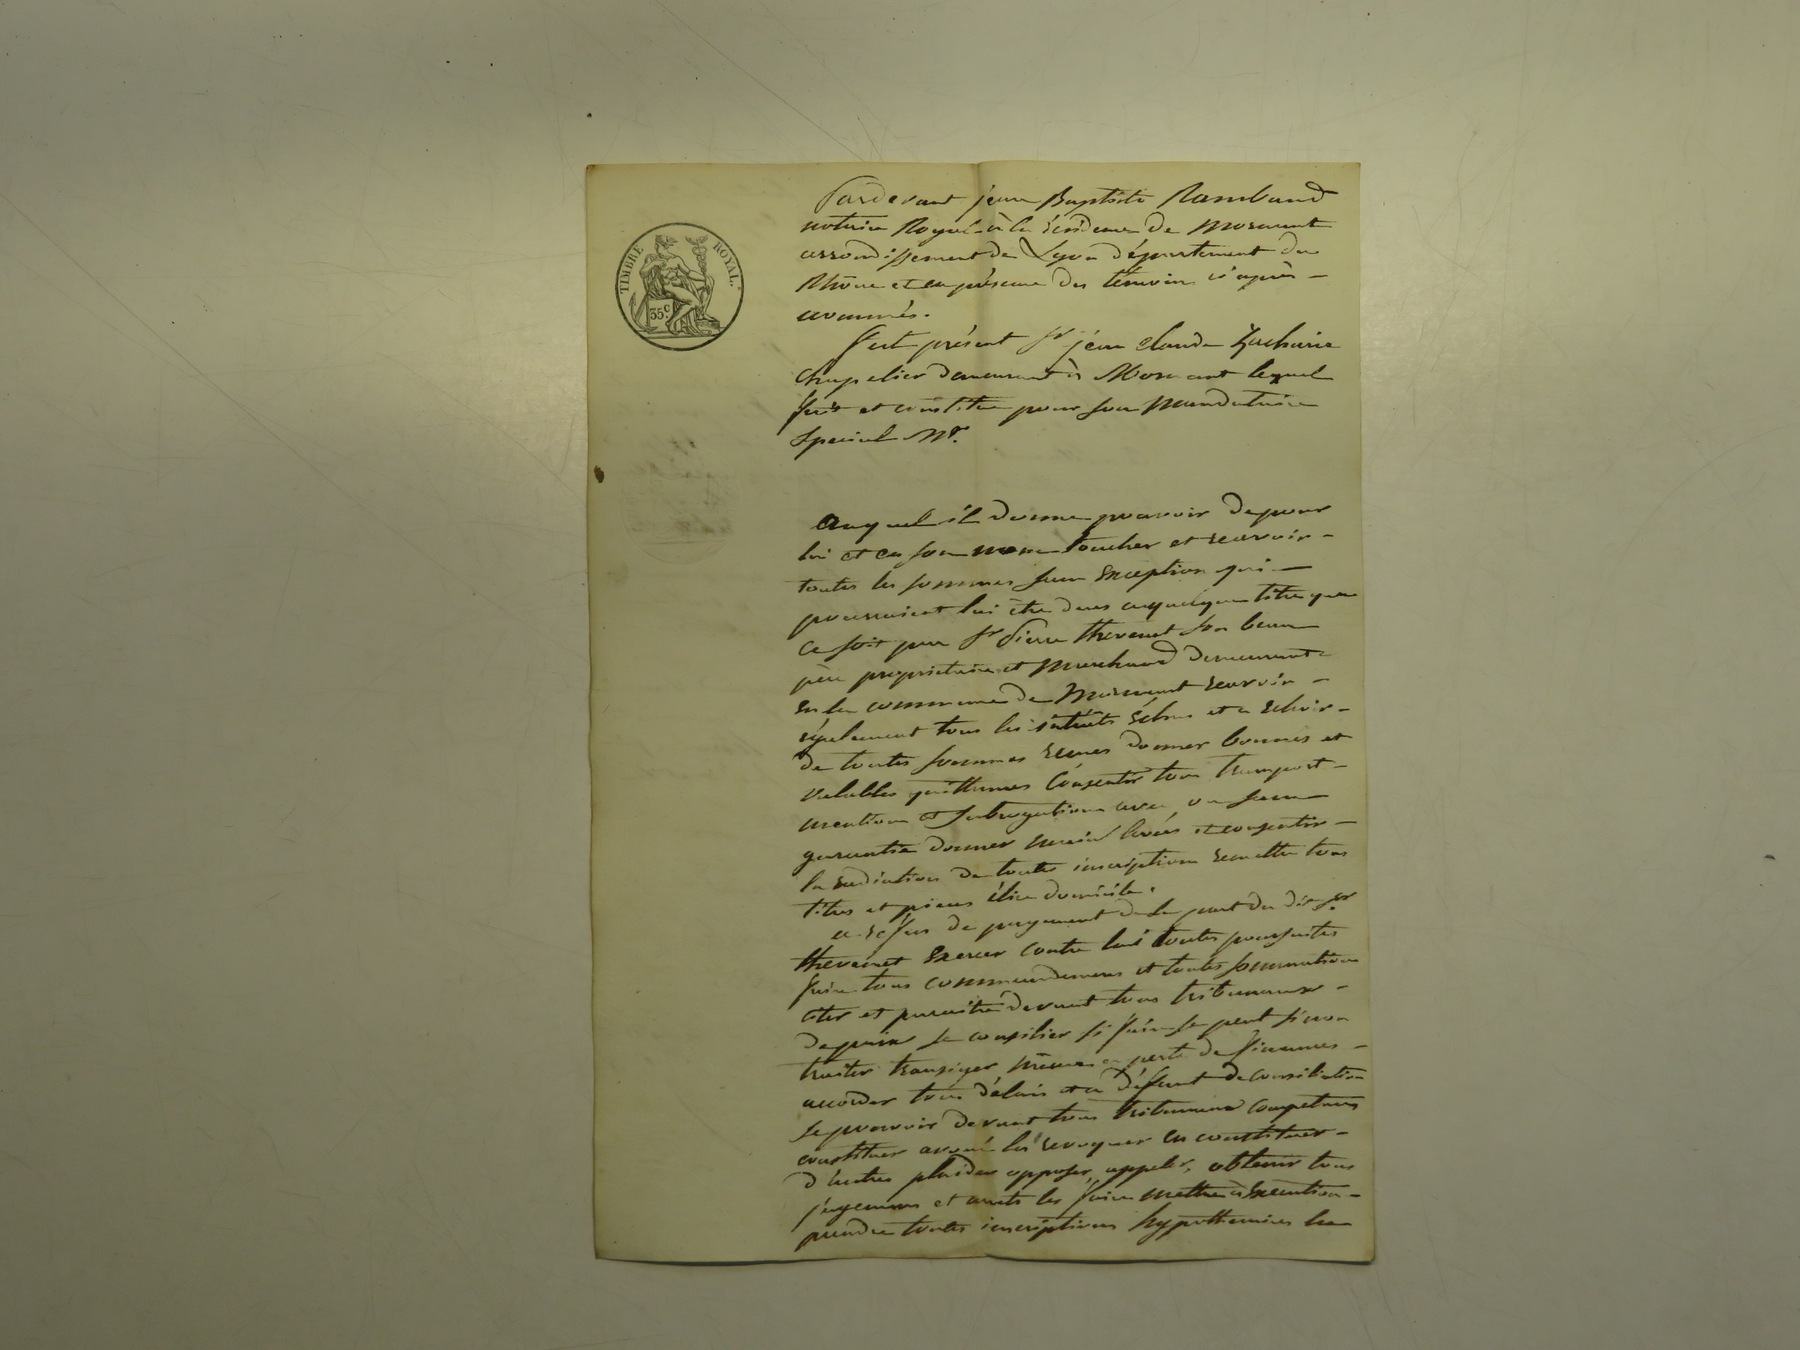 TIMBRE ROYAL.
35c
Pardevant jean Baptiste Rambaud
notaire Royal à la résidence de Mornant
arrondissement de Lyon département du
Rhône et en présence des témoins ci après
avannés.
Fut présent Sr jean claude Zacharie
Chapelier demeurant à Mornant lequel
fait et constitue pour son Mandataire
Special Mr.
Auquel il donne pouvoir de pour
lui et en son nom toucher et recevoir
toutes les sommes sans Exception qui
pourraient lui être dues a quelque titre que
ce soit par Sr Pierre thevenet son beau
père propriétaire et Marchand demeurant
en la commune de Mornant recevoir
également tous les intérêts échus et a echoir
de toutes sommes reçues donner bonnes et
valables quittances Consentir tous transport
mention et subrogation avec ou sans
garantie donner main levées et consentir
la radiation de toutes inscriptions remettre tous
titres et pieces élire domicile.
a refus de payement de la part du dit Sr
thevenet Exercer contre lui toutes poursuites
faire tous commandemens et toutes sommations
citer et paraitre devant tous tribunaux
de paix se consilier si faire se peut sinon
traiter transiger même en perte de finances
accorder tous délais et a défaut de consiliation
se pourvoir devant tous tribunaux competens
constituer avoué les revoquer en constituer
d'autres plaider opposer, appeler, obtenir tous
jugemens et arrets les faire mettre à Execution
prendre toutes inscriptions hypothecaires les